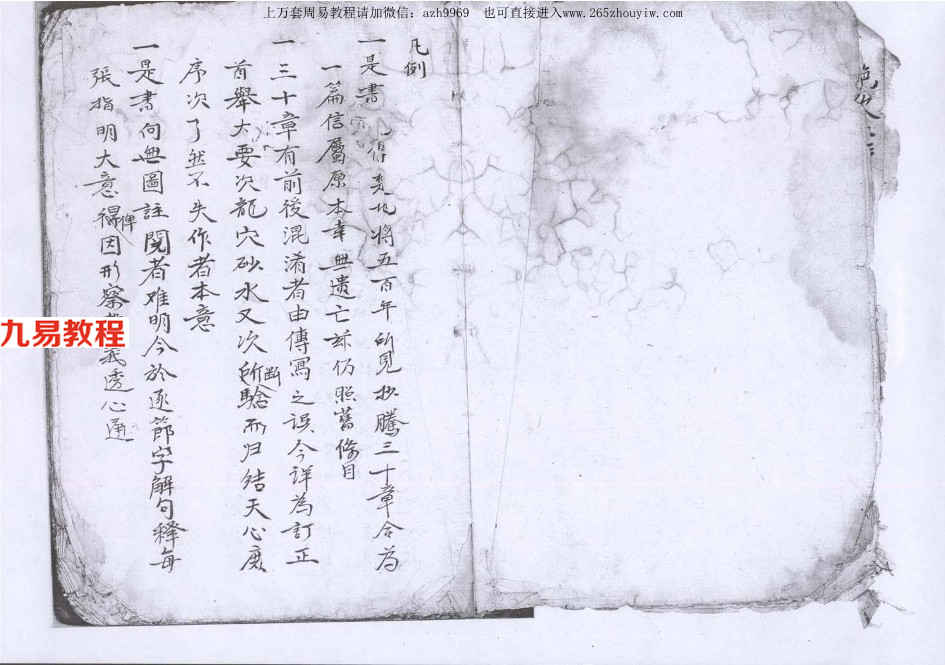 上万套周易教程请加微信：azh9969　也可直接进入www.265zhouyiw.com
凡例
一是書 得 將五百年所見抄騰三十章合為
一篇信屬原本幸無遺亡玆仍照舊條目
一三十章有前後混淆者由傳寫之誤今详為訂正
首舉大要次龍穴砂水又次所断驗而归结天心庶
序次了然不失作者本意
一是書向無圖註閱者难明今於逐節字解句释每
張指明大意俾得因形察 義透心通
九易教程